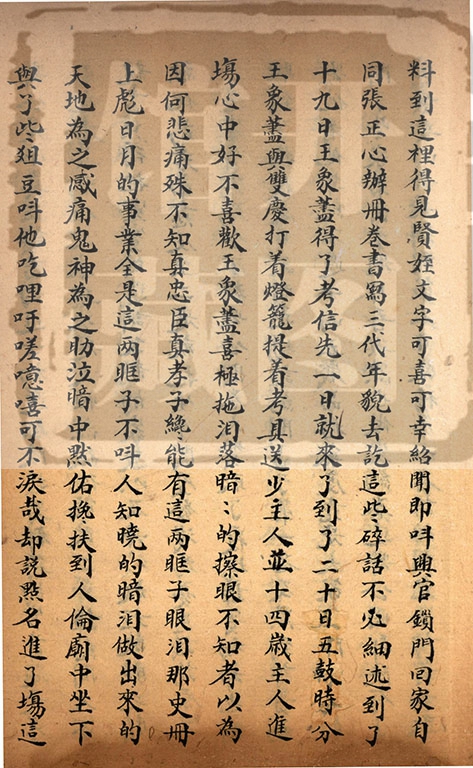 料到這裡得見賢姪文字可喜可幸紹聞即呌興官鎖門回家自
同張正心辦冊卷書寫三代年貌去訖這些碎話不必細述到了
十九日王象藎得了考信先一日就來了到了二十日五鼓時分
王象藎與雙慶打着燈籠提着考具送少主人並十四歲主人進
塲心中好不喜歡王象藎喜極拖泪落暗〻的擦眼不知者以為
因何悲痛殊不知真忠臣真孝子纔能有這兩眶子眼泪那史冊
上彪日月的事業全是這兩眶子不呌人知曉的暗泪做出來的
天地為之感痛鬼神為之助泣暗中黙佑挽扶到人倫廟中坐下
與了些俎豆呌他吃哩吁嗟噫嘻可不淚哉却說㸃名進了塲這